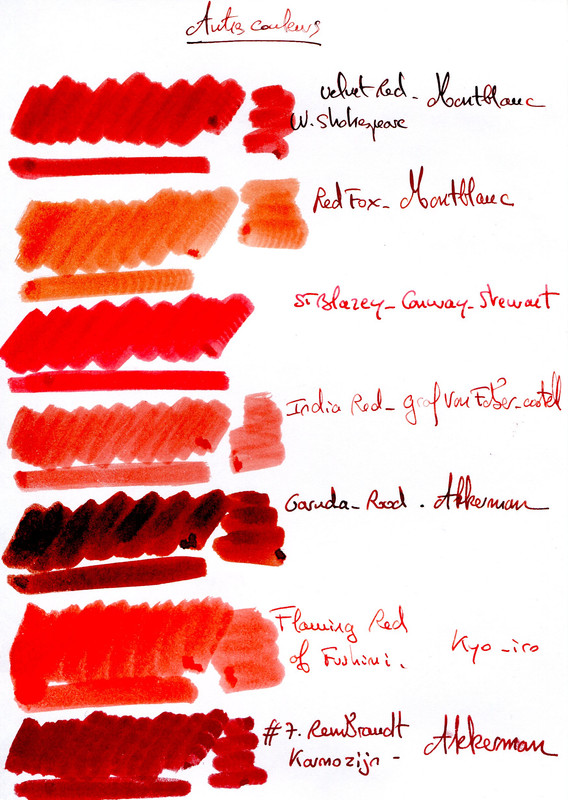 Autres couleurs
Velvet Red - Montblanc
W. Shakespeare
Red Fox - Montblanc
St Blazey - Conway - Stewart
India Red - Graf Von Faber-castell
Garuda - Rood . Akkerman
Flaming Red
of Fushimi . Kyo-iro
#7. RemBrandt
Karmozijn - Akkerman